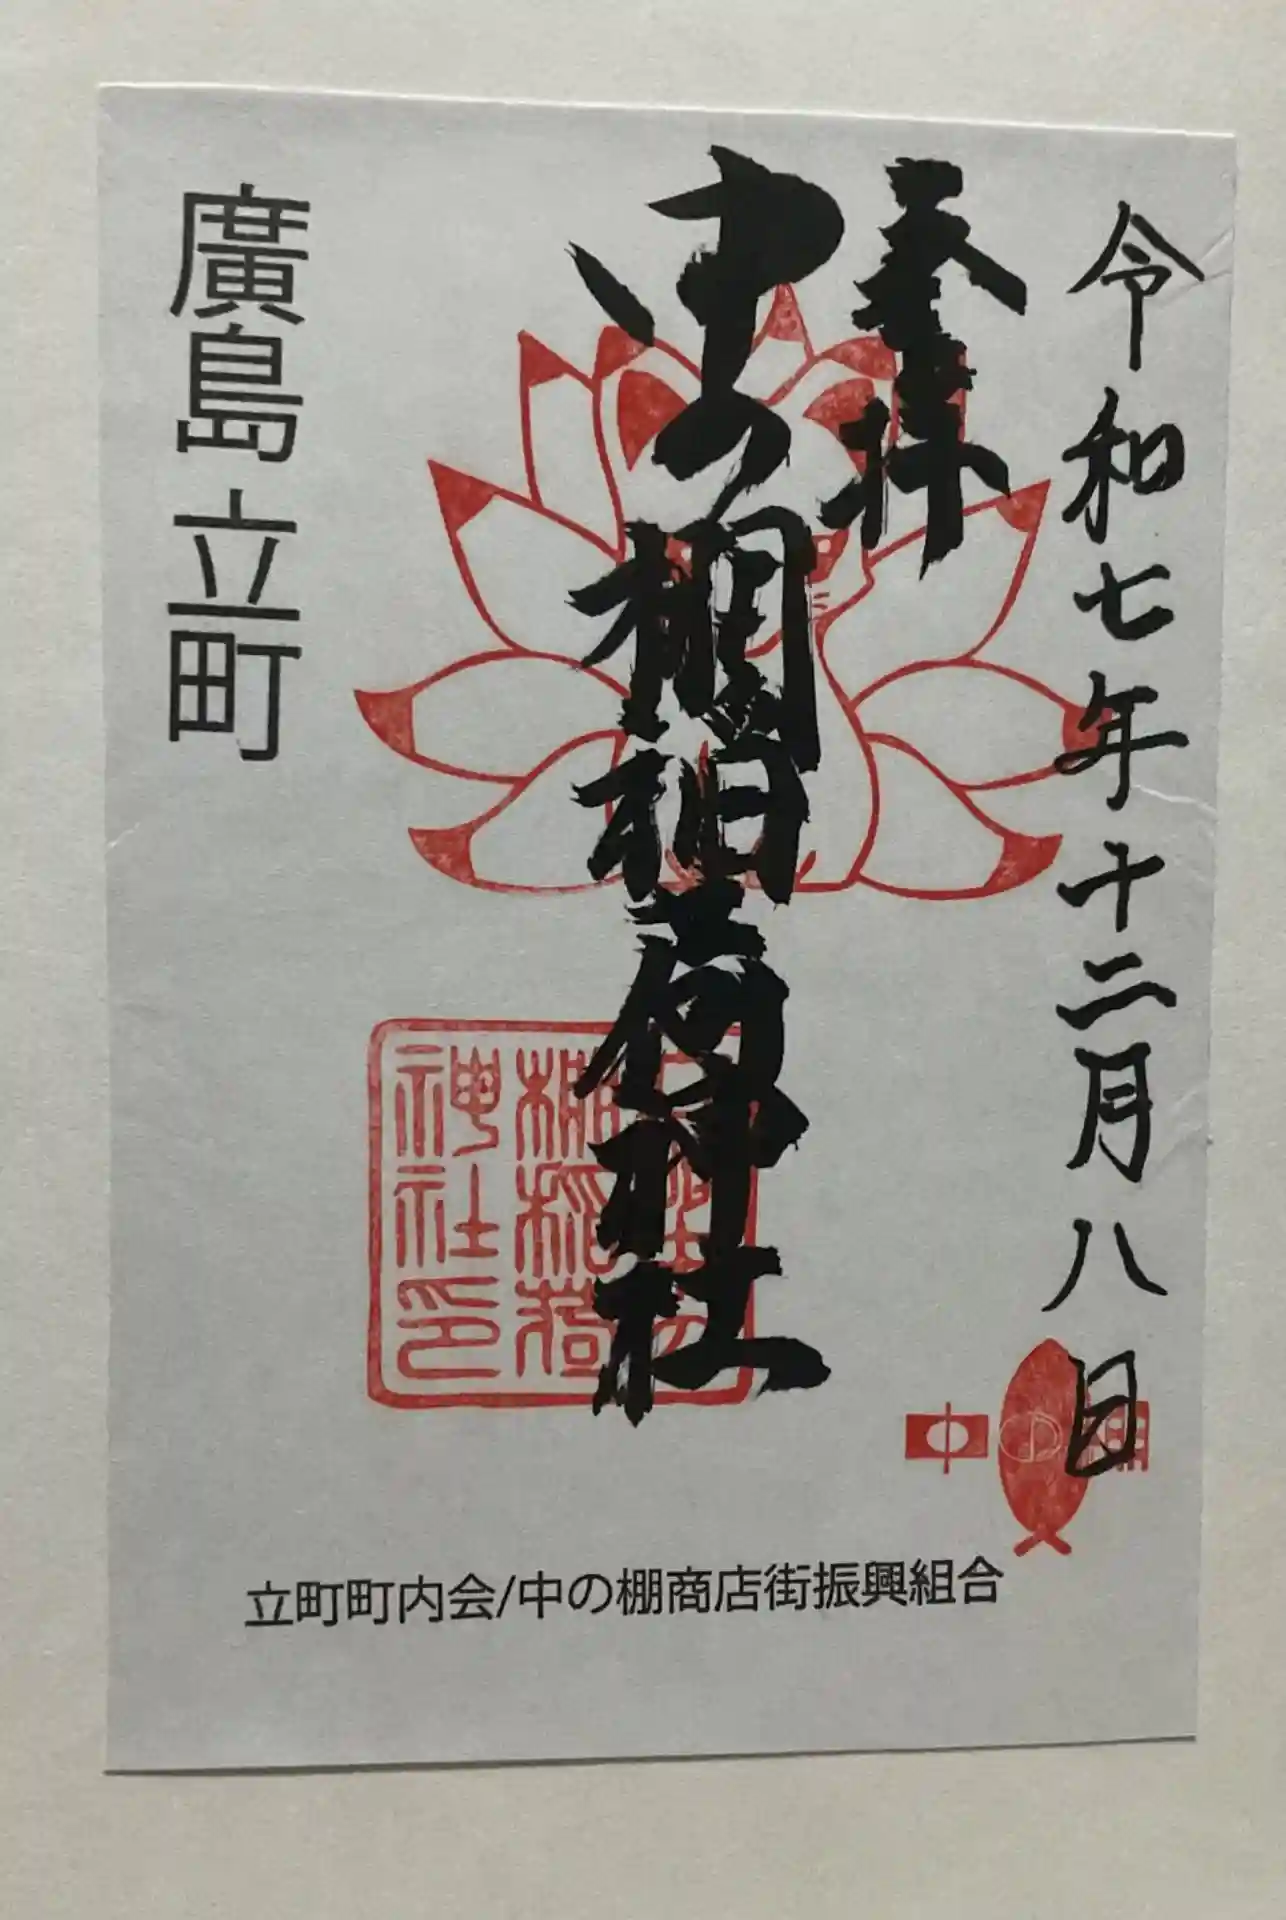 令和七年十二月八日
奉拝
中の棚稲荷神社
廣島 立町
棚稲荷
神社印
中の棚
立町町内会/中の棚商店街振興組合